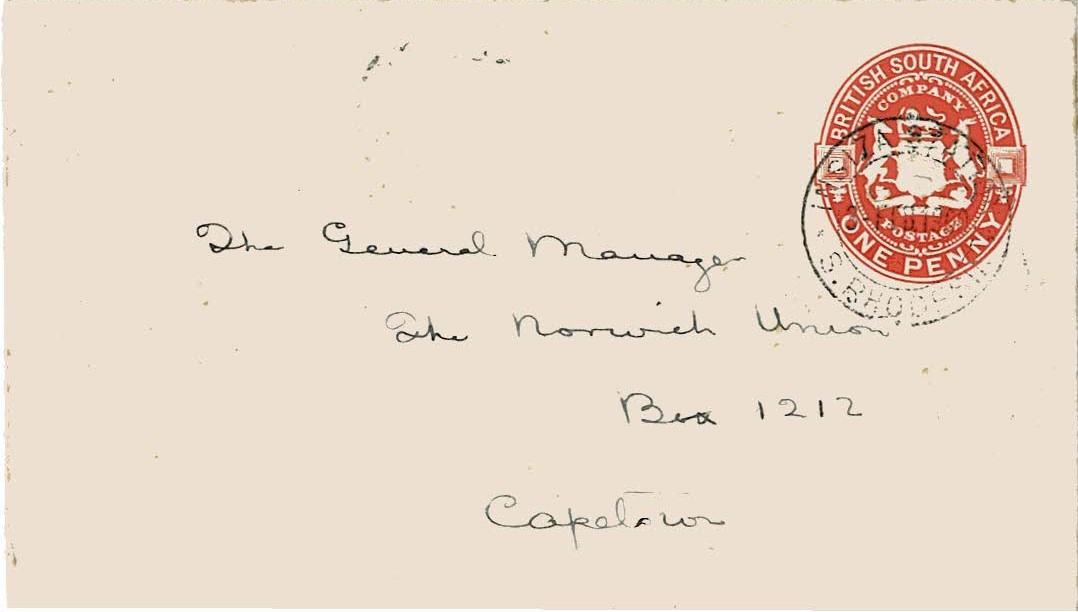 BRITISH SOUTH AFRICA
COMPANY
POSTAGE
ONE PENNY
S. RHODESIA
The General Manager
The Norwich Union
Box 1212
Capetown